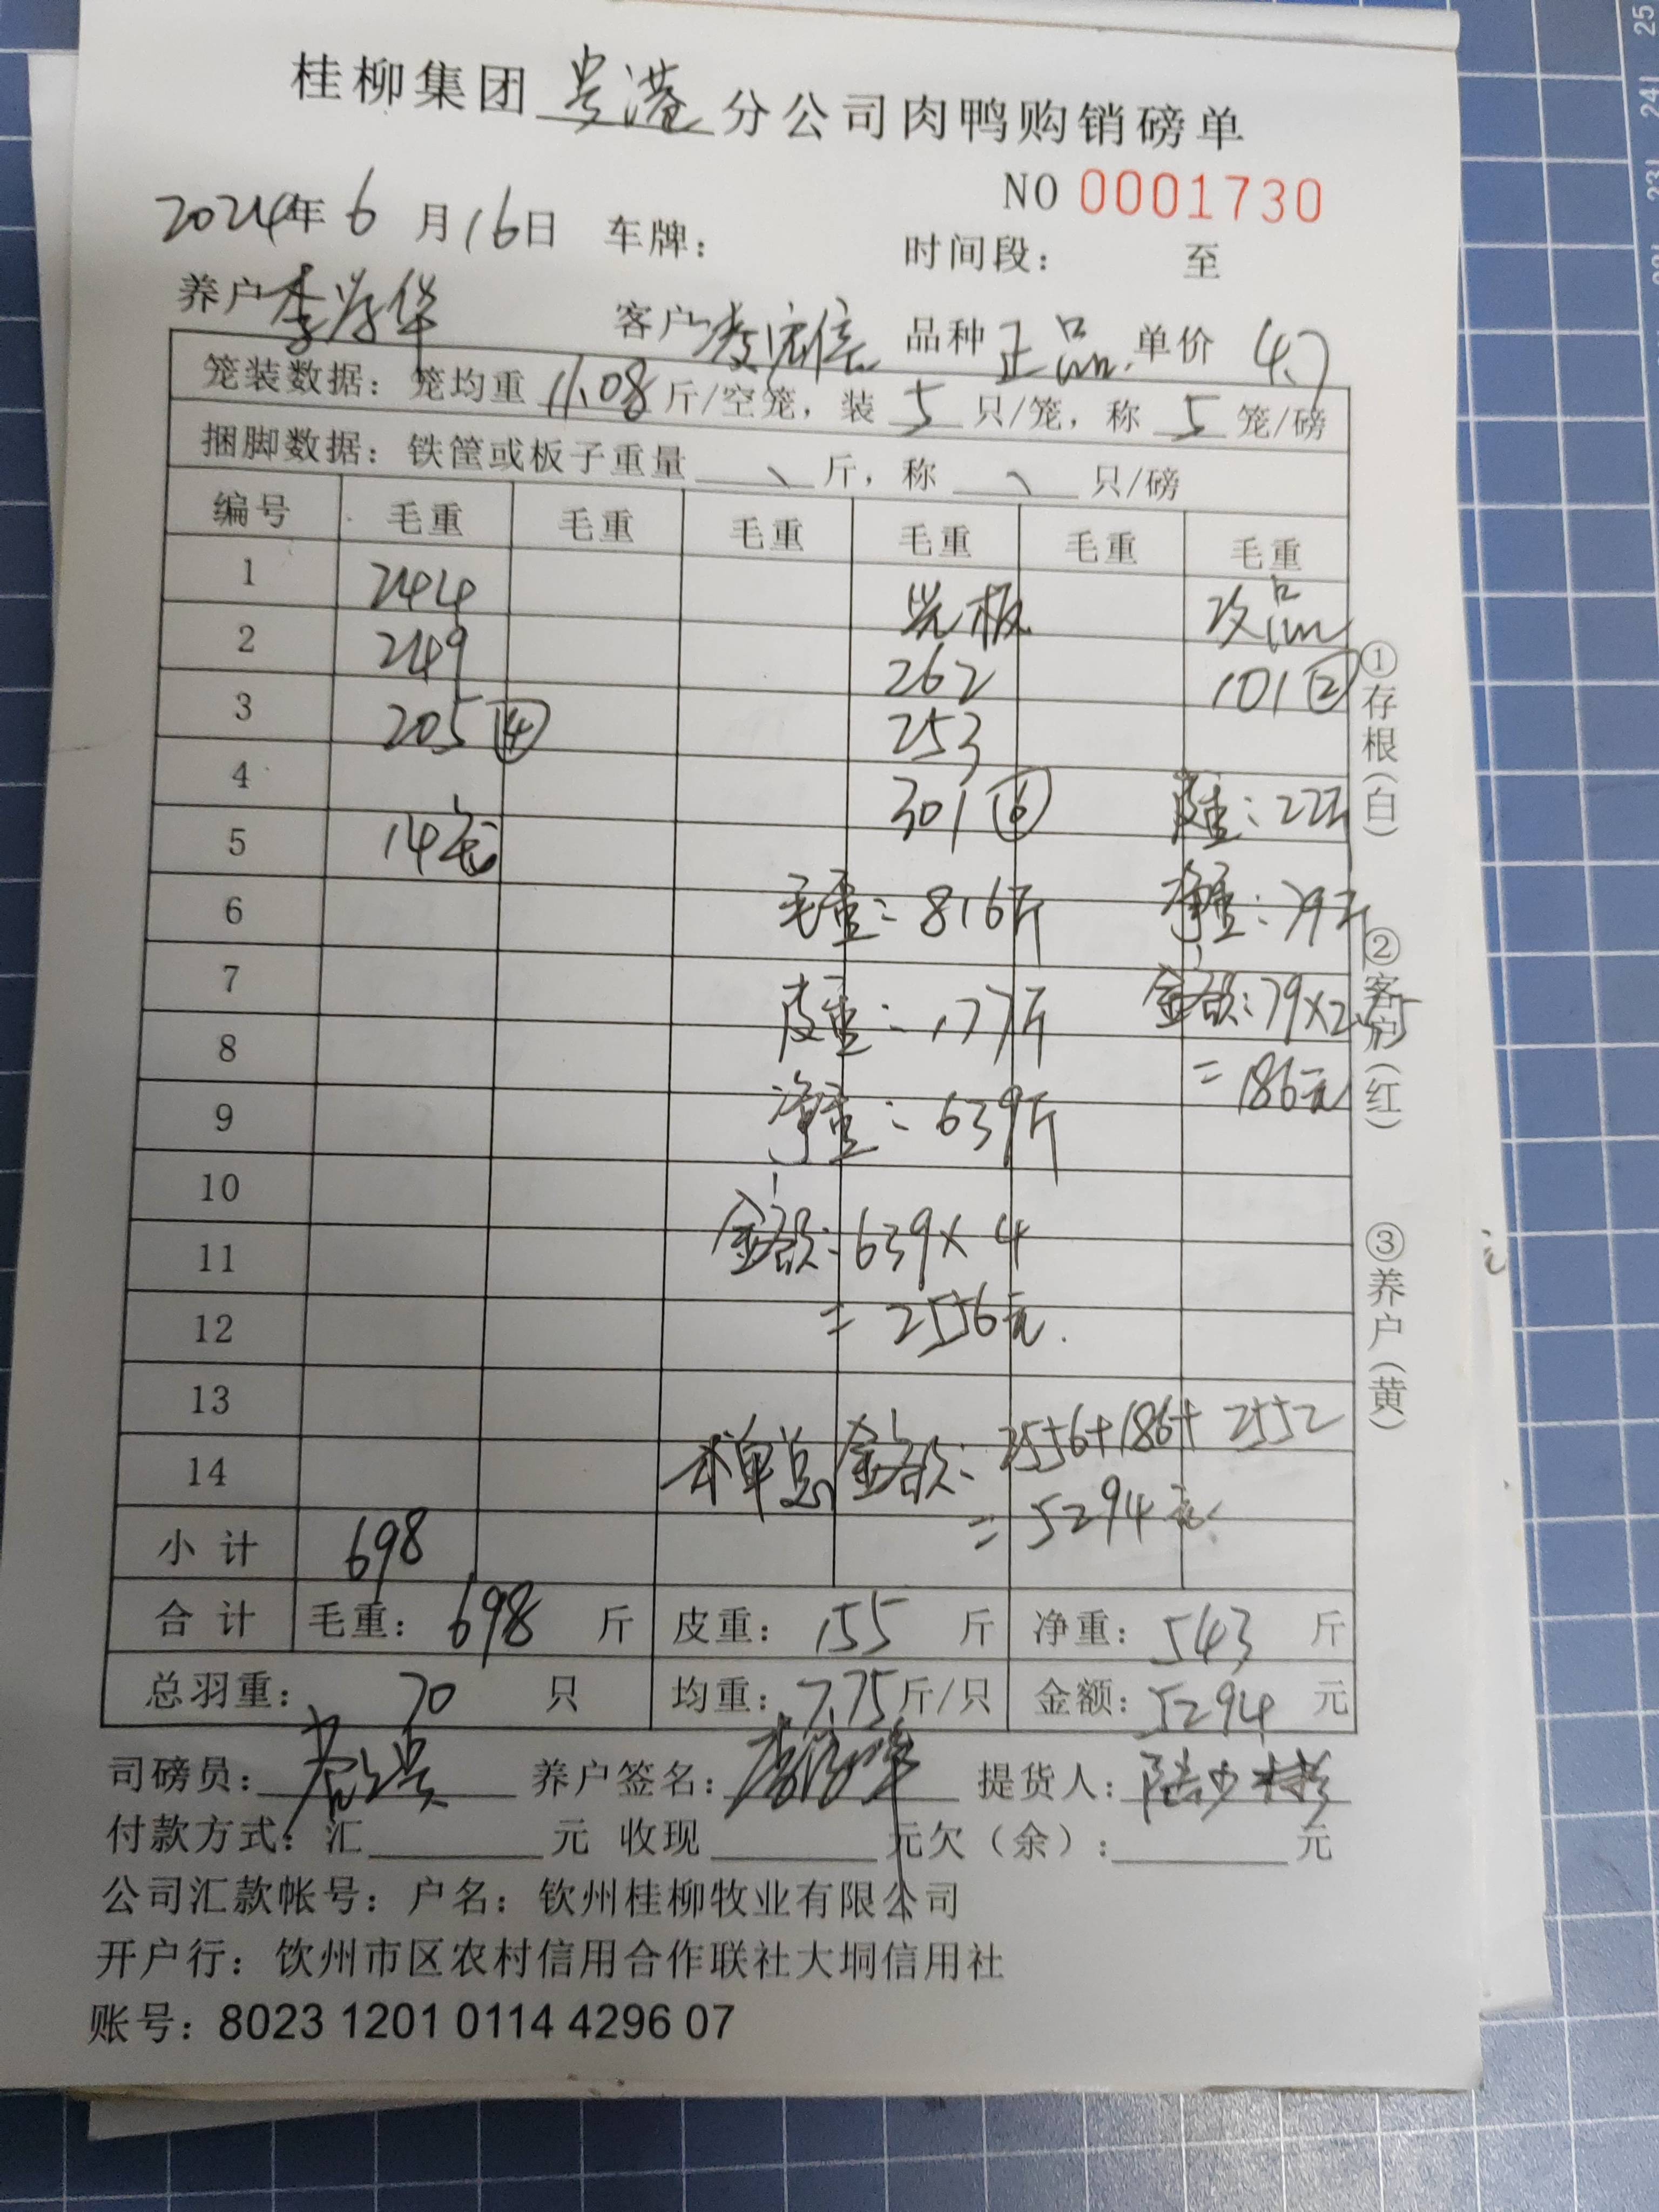 桂柳集团 贵港 分公司肉鸭购销磅单
NO 0001730
2024年 6 月 16日 车牌： 时间段： 至
养户 李 华 客户 宏信 品种 正品. 单价 4.7
笼装数据：笼均重 11.08 斤/空笼，装 5 只/笼，称 5 笼/磅
捆脚数据：铁筐或板子重量 \ 斤，称 \ 只/磅
编号 毛重 毛重 毛重 毛重 毛重 毛重
1 244 光板 次品
2 249 262 101 ②
3 205 ⑭ 253
4 301 ⑯ 皮重：22斤
5 14笼
6 毛重：816斤 净重：79斤
7 皮重：177斤 金额：79×2.35
8 =186元
9 净重：639斤
10
11 金额：639×4
12 =2556元.
13 本单总金额：2556+186+2552
14 =5294元
小计 698
合计 毛重：698 斤 皮重：155 斤 净重：543 斤
总羽重：70 只 均重：7.75 斤/只 金额：5294 元
司磅员： 养户签名：李 华 提货人：陆少
付款方式：汇 元 收现 元欠（余）： 元
公司汇款帐号：户名：钦州桂柳牧业有限公司
开户行：饮州市区农村信用合作联社大垌信用社
账号：8023 1201 0114 4296 07
①存根（白）
②客户（红）
③养户（黄）